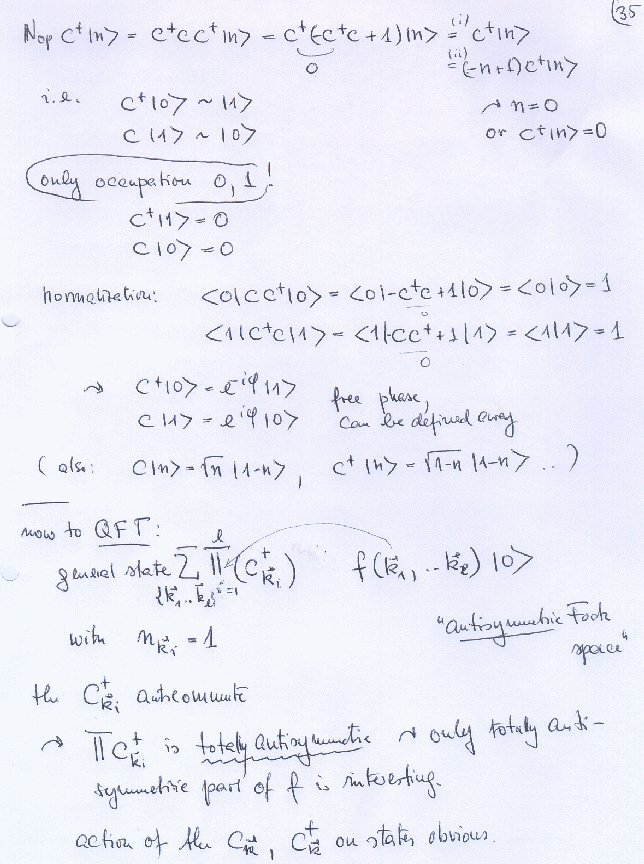 35
N_op c⁺|n> = c⁺cc⁺|n> = c⁺(-c⁺c + 1)|n> =(i) c⁺|n>
0
=(ii) (-n+1)c⁺|n>
i.e. c⁺|0> ~ |1>
⤳ n=0
c|1> ~ |0>
or c⁺|n>=0
only occupation 0, 1!
c⁺|1> = 0
c|0> = 0
normalization: <0|cc⁺|0> = <0|-c⁺c+1|0> = <0|0> = 1
0
<1|c⁺c|1> = <1|-cc⁺+1|1> = <1|1> = 1
0
⤳ c⁺|0> = e^{-iφ}|1> free phase,
c|1> = e^{iφ}|0> can be defined away
(also: c|n> = √n |1-n>, c⁺|n> = √1-n |1-n> ..)
now to QFT:
general state Σ_{{k⃗₁..k⃗_l}} Π_{i=1}^{l} (c⁺_{k⃗_i}) f(k⃗₁,..k⃗_l) |0>
with n_{k⃗_i} = 1
"antisymmetric Fock
space"
the c⁺_{k⃗_i} anticommute
⤳ Π c⁺_{k⃗_i} is totally antisymmetric ⤳ only totally anti-
symmetric part of f is interesting.
action of the c_{k⃗}, c⁺_{k⃗} on states obvious.